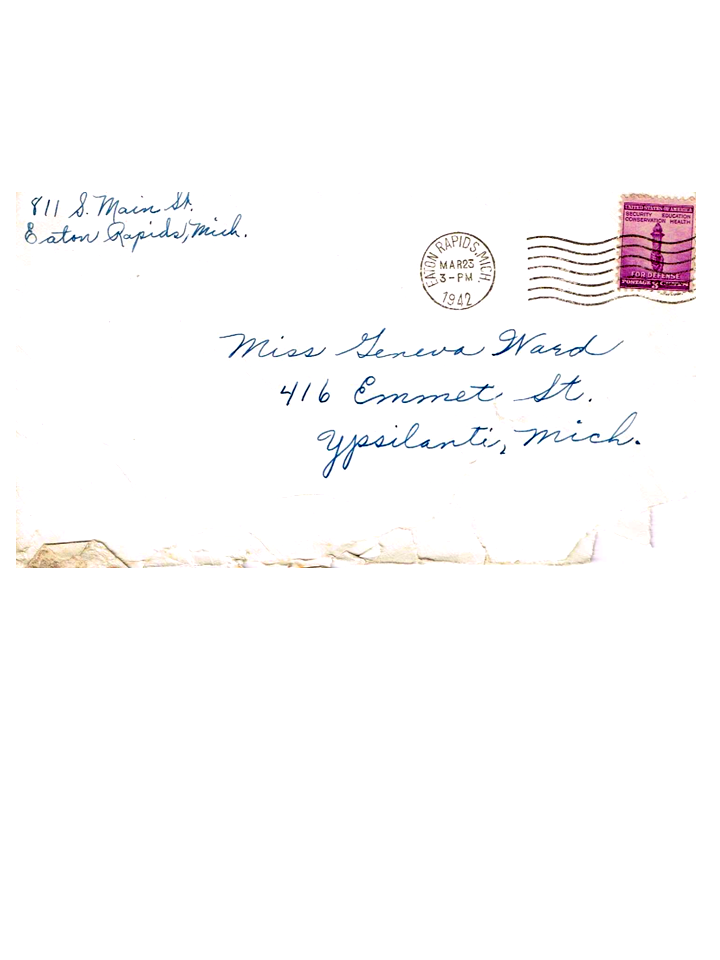 811 S. Main St.
Eaton Rapids, Mich.
EATON RAPIDS, MICH.
MAR 23
3-PM
1942
UNITED STATES OF AMERICA
SECURITY EDUCATION
CONSERVATION HEALTH
FOR DEFENSE
POSTAGE 3 CENTS
Miss Geneva Ward
416 Emmet St.
Ypsilanti, Mich.